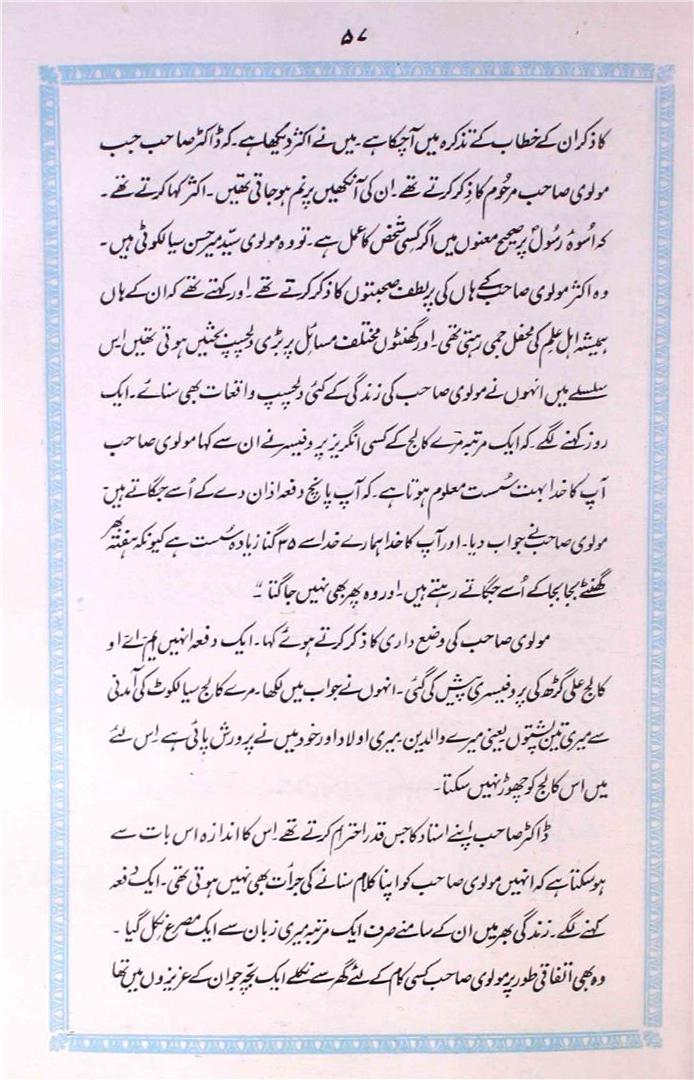 ۵۷
کا ذکر ان کے خطاب کے تذکرہ میں آچکا ہے۔ میں نے اکثر دیکھا ہے۔ کہ ڈاکٹر صاحب جب
مولوی صاحب مرحُوم کا ذِکر کرتے تھے۔ ان کی آنکھیں پرنم ہو جاتی تھیں۔ اکثر کہا کرتے تھے۔
کہ اُسوۂ رسُولؐ پر صحیح معنوں میں اگر کسی شخص کا عمل ہے۔ تو وہ مولوی سیّد میر حسن سیالکوٹی ہیں۔
وہ اکثر مولوی صاحب کے ہاں کی پر لطف صحبتوں کا ذکر کرتے تھے۔ اور کہتے تھے کہ ان کے ہاں
ہمیشہ اہل عِلم کی محفل جمی رہتی تھی۔ اور گھنٹوں مختلف مسائل پر بڑی دلچسپ بحثیں ہوتی تھیں اِس
سلسلے میں انہوں نے مولوی صاحب کی زندگی کے کئی دلچسپ واقعات بھی سنائے۔ ایک
روز کہنے لگے۔ کہ ایک مرتبہ مرے کالج کے کسی انگریز پروفیسر نے ان سے کہا مولوی صاحب
آپ کا خدا بہت سُست معلوم ہوتا ہے۔ کہ آپ پانچ دفعہ اذان دے کے اُسے جگاتے ہیں
مولوی صاحب نے جواب دیا۔ اور آپ کا خدا ہمارے خدا سے ۳۵ گنا زیادہ سُست ہے کیونکہ ہفتہ بھر
گھنٹے بجا بجا کے اُسے جگاتے رہتے ہیں۔ اور وہ پھر بھی نہیں جاگتا۔"
مولوی صاحب کی وضعداری کا ذکر کرتے ہوئے کہا۔ ایک دفعہ انہیں ایم۔ اے۔ او
کالج علی گڑھ کی پروفیسری پیش کی گئی۔ انہوں نے جواب میں لکھا۔ مرے کالج سیالکوٹ کی آمدنی
سے میری تین پشتوں یعنی میرے والدین۔ میری اولاد اور خود میں نے پرورش پائی ہے اِس لئے
میں اس کالج کو چھوڑ نہیں سکتا۔
ڈاکٹر صاحب اپنے استاد کا جس قدر احترام کرتے تھے اِس کا اندازہ اس بات سے
ہو سکتا ہے کہ انہیں مولوی صاحب کو اپنا کلام سنانے کی جرأت بھی نہیں ہوتی تھی۔ ایک دفعہ
کہنے لگے۔ زندگی بھر میں ان کے سامنے صرف ایک مرتبہ میری زبان سے ایک مصرع نکل گیا۔
وہ بھی اتفاقی طور پر مولوی صاحب کسی کام کے لئے گھر سے نکلے ایک بچّہ جو ان کے عزیزوں میں تھا